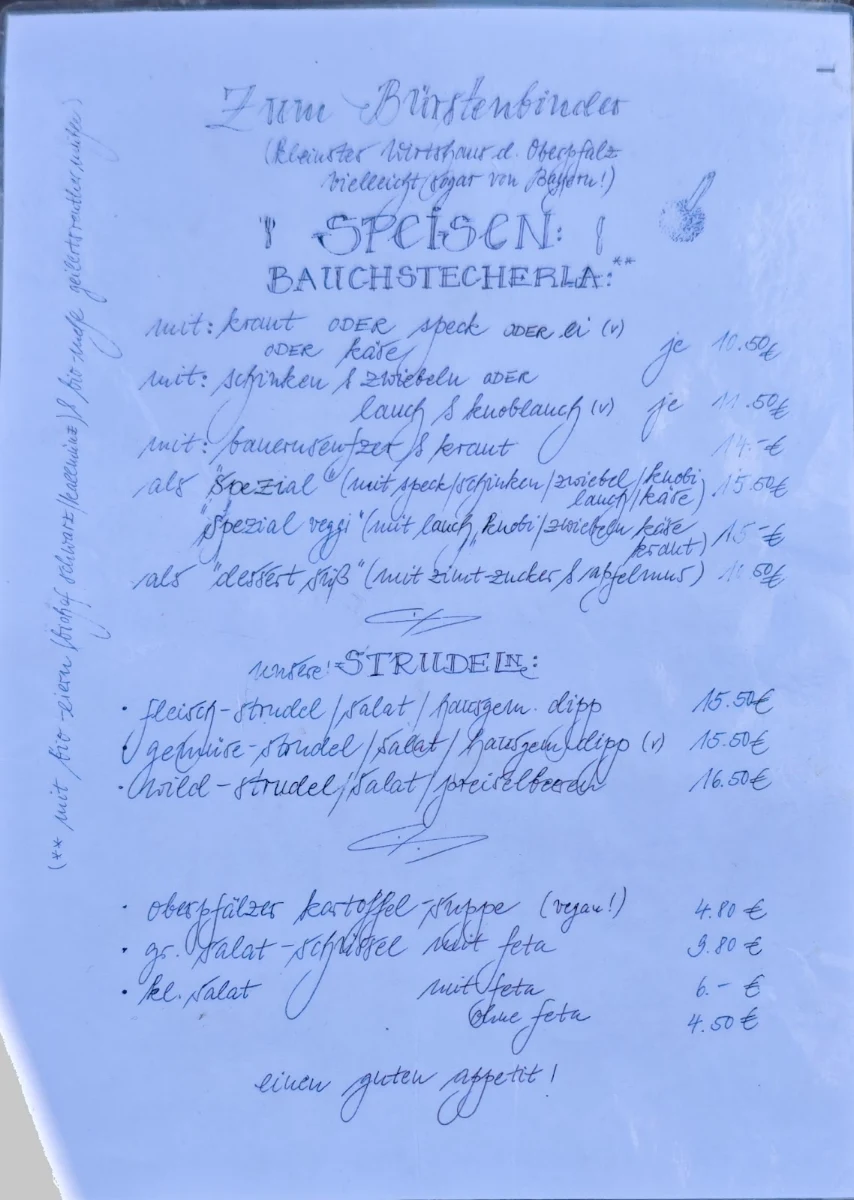 Zum Bürstenbinder
(kleinster Wirtshaus d. Oberpfalz
vielleicht sogar von Bayern!)
! SPEISEN: !
BAUCHSTECHERLA:**
mit: kraut ODER speck ODER ei (v)
ODER käse je 10.50€
mit: schinken & zwiebeln ODER
lauch & knoblauch (v) je 11.50€
mit: bauernseufzer & kraut 14.-€
als "Spezial" (mit speck/schinken/zwiebel/knobi
lauch/käse) 15.50€
"Spezial veggi" (mit lauch, knobi/zwiebeln käse
kraut) 15.-€
als "dessert süß" (mit zimt-zucker & apfelmus) 50€
unsere! STRUDELN:
· fleisch-strudel/salat/hausgem. dipp 15.50€
· gemüse-strudel/salat/hausgem. dipp (v) 15.50€
· wild-strudel/salat/preiselbeeren 16.50€
· oberpfälzer kartoffel-suppe (vegan!) 4.80 €
· gr. salat-schüssel mit feta 9.80 €
· kl. salat mit feta 6.- €
ohne feta 4.50 €
einen guten appetit!
(** mit bio-eiern (biohof schwarz/kallmünz) & bio-mehl